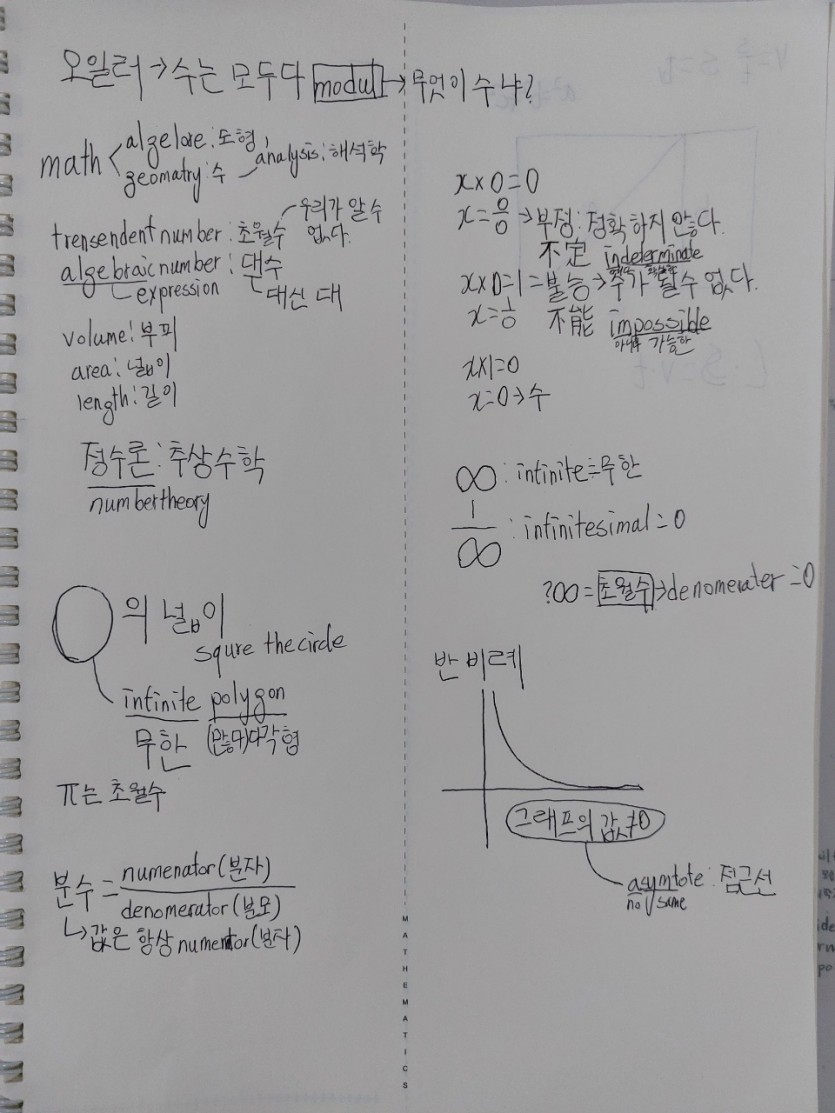 오일러→수는 모두다 modul→무엇이 수냐?
math
algelore:도형
geomatry:수
analysis:해석학
우리가 알 수
trensendent number:초월수 없다.
algebraic number:댄수
expression 대신 대
volume:부피
area:넓이
length:길이
정수론:추상수학
number theory
의 넓이
squre the circle
infinite polygon
무한 (많다)다각형
π는 초월수
numenator(분자)
분수=
denomerator(분모)
↳값은 항상 numentor(분자)
x×0=0
x=0/0→부정:정확하지 않다.
不定 indeterminate
x×0=1=불능→수가 될수 없다.
x=1/0 不能 impossible
아니다 가능한
x×1=0
x=0→수
∞:infinite=무한
1/∞:infinitesimal=0
?00=초월수→denomerater=0
반비례
그래프의 값≠0
asymtote:점근선
no/same
MATHEMATICS